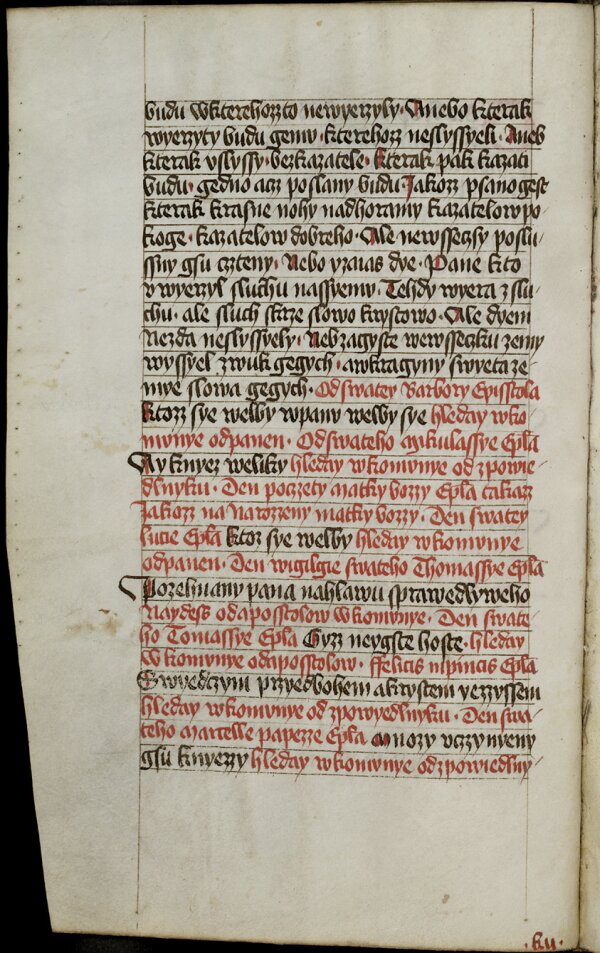 budu wkterehozzto newyerzyly · Anebo kterak
wyerzyty budu gemu · kterehozz neslyssyeli · Aneb
kterak vslyssy · bezkazatele · kterak pak kazati
budu · gedno acz poslany budu Jakozz psano gest
kterak krasne nohy nadhoramy kazatelow po
koge · kazatelow dobreho · Ale newsseczsy poslu
ssny gsu czteny · Nebo yzaias dye · Pane kto
vwyerzyl sluchu nassyemu · Tehdy wyera z slu
chu · ale sluch skrze slowo krystowo · Ale dyem
Nezda neslyssyely · Neb zagyste wewsseczku zemy
wyssyel zwuk gegych · awkragyny swyeta ze
mye slowa gegych · Od swatey Barbory Episstola
ktozz sye welby wpanu welby sye hleday wko
munye odpanen · Od swateho mikulassye Epla
Ay knyez weliky hleday wkomunye od zpowie
dlnyku · Den poczety matky bozzy Epla takazz
Jakozz na Narozzeny matky bozzy · Den swatey
lucie Epla ktoz sye welby hleday wkomunye
odpanen · Den wigilgie swateho Thomassye Epla
Pozehnany pana nahlawu sprawedlyweho
Naydess odaposstolow wkomunye · Den swate
ho Tomassye Epla Gyzz neygste hoste · hleday
wkomunye odaposstolow · ffelicis inpincis Epla
Swyedczym przyedbohem akrystem yezzyssem
hleday wkomunye od zpowyedlnyku · Den swa
teho Marcelle papezze Epla Mnozy vczynyeny
gsu knyezzy hleday wkomunye odzpowiedlny
· ku ·